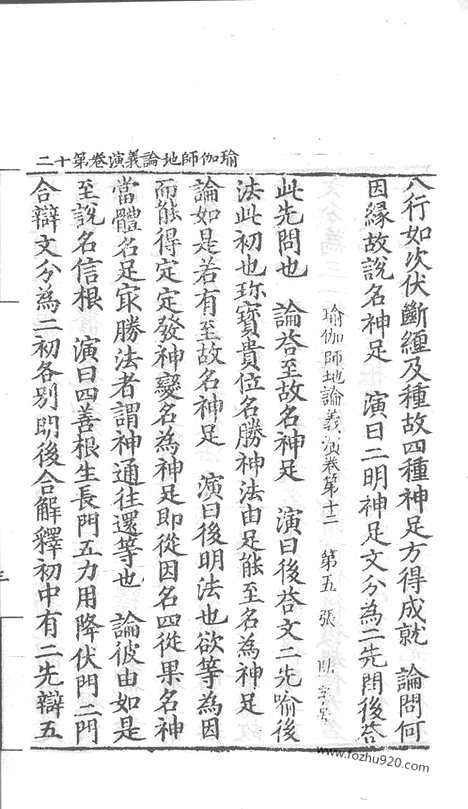 瑜伽師地論義演卷第十二
八行如次伏斷纏及種故四種神足方得成就　論問何
因緣故說名神足　演曰二明神足文分為二先問後荅
瑜伽師地論義演卷第十二　第五張
此先問也　論荅至故名神足　演曰後荅文二先喻後
法此初也珎寶貴位名勝神法由足能至名為神足
論如是若有至故名神足　演曰後明法也欲等為因
而能得定定發神變名為神足即從因名四從果名神
當體名足㝡勝法者謂神通往還等也　論彼由如是
至說名信根　演曰四善根生長門五力用降伏門二門
合辯文分為二初各別明後合解釋初中有二先辯五
www.fozhu920.com